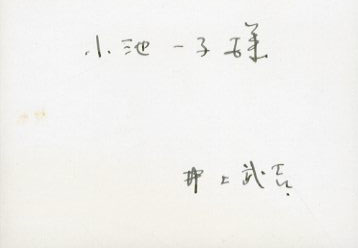 小池一子様
井上武吉